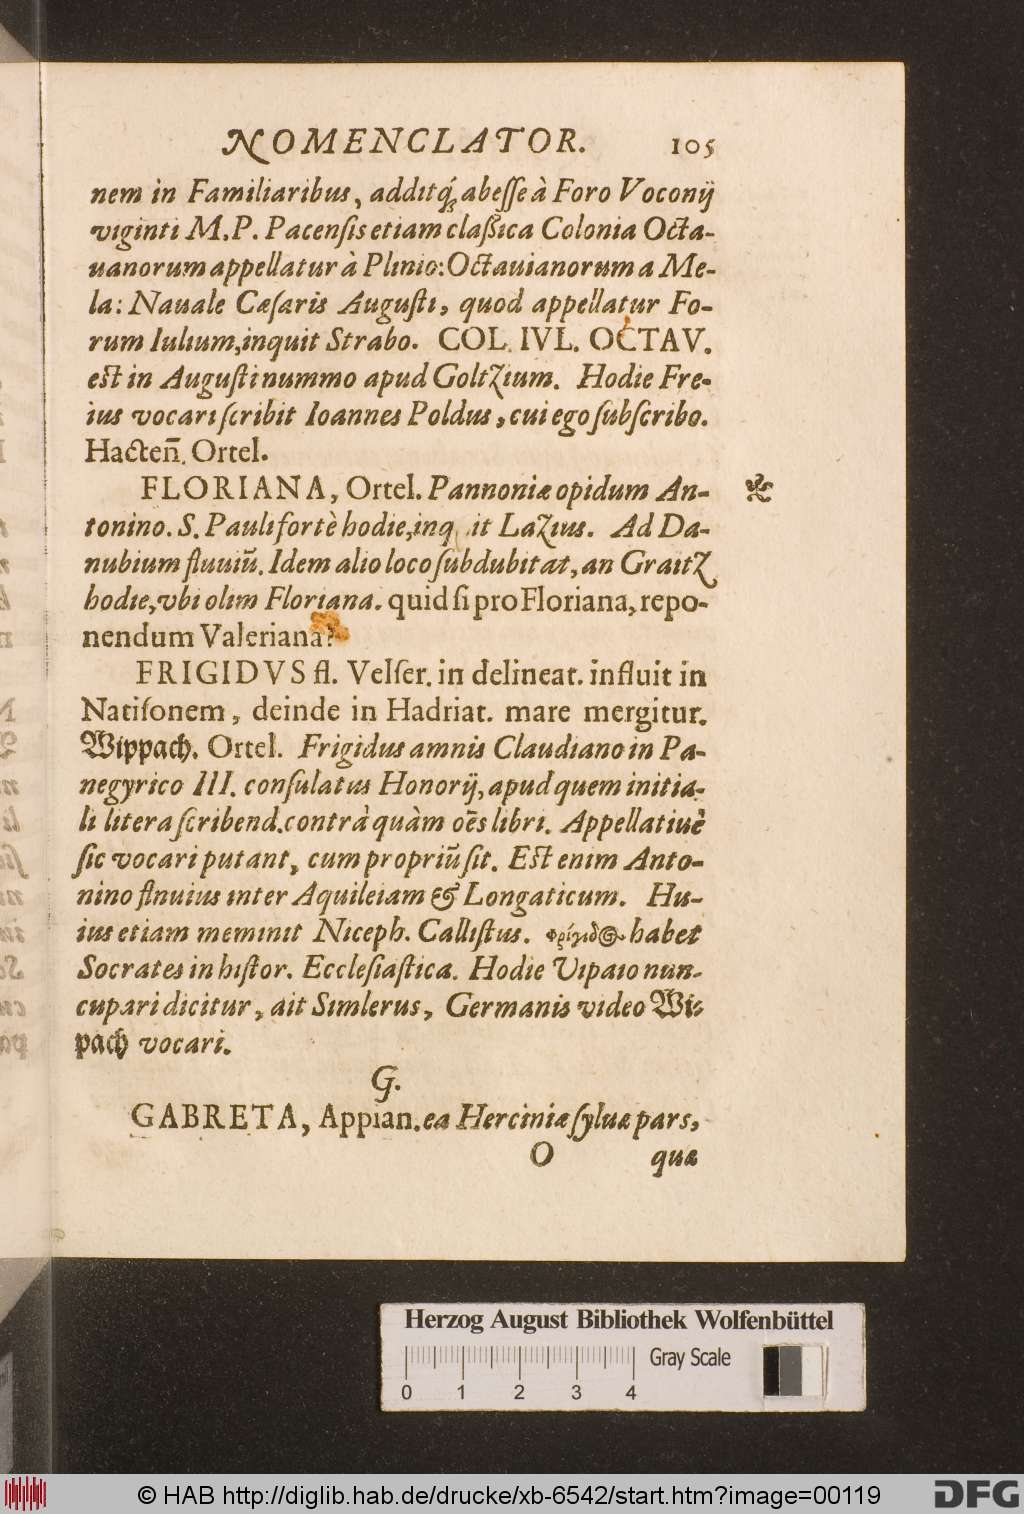 NOMENCLATOR. 105
nem in Familiaribus, additq́; abeſſe à Foro Voconij
viginti M.P. Pacenſis etiam claßica Colonia Octa-
uanorum appellatur à Plinio: Octauianorum a Me-
la: Nauale Cæſaris Auguſti, quod appellatur Fo-
rum Iulium, inquit Strabo. COL. IVL. OCTAV.
eſt in Auguſti nummo apud Goltzium. Hodie Fre-
ius vocari ſcribit Ioannes Poldus, cui ego ſubſcribo.
Hacten̄. Ortel.
FLORIANA, Ortel. Pannoniæ opidum An-
tonino. S. Pauli fortè hodie, inq it Lazius. Ad Da-
nubium fluuiū. Idem alio loco ſubdubitat, an Graitz
hodie, vbi olim Floriana. quid ſi pro Floriana, repo-
nendum Valeriana?
FRIGIDVS fl. Velſer. in delineat. influit in
Natiſonem, deinde in Hadriat. mare mergitur.
Wippach. Ortel. Frigidus amnis Claudiano in Pa-
negyrico III. conſulatus Honorij, apud quem initia-
li litera ſcribend. contrà quàm oēs libri. Appellatiuè
ſic vocari putant, cum propriū ſit. Eſt enim Anto-
nino flnuius inter Aquileiam & Longaticum. Hu-
ius etiam meminit Niceph. Calliſtus. Φρίγιδος habet
Socrates in hiſtor. Eccleſiaſtica. Hodie Vipaio nun-
cupari dicitur, ait Simlerus, Germanis video Wi-
pach vocari.
G.
GABRETA, Appian. ea Herciniæ ſyluæ pars,
O quæ
Herzog August Bibliothek Wolfenbüttel
Gray Scale
0 1 2 3 4
© HAB http://diglib.hab.de/drucke/xb-6542/start.htm?image=00119
DFG